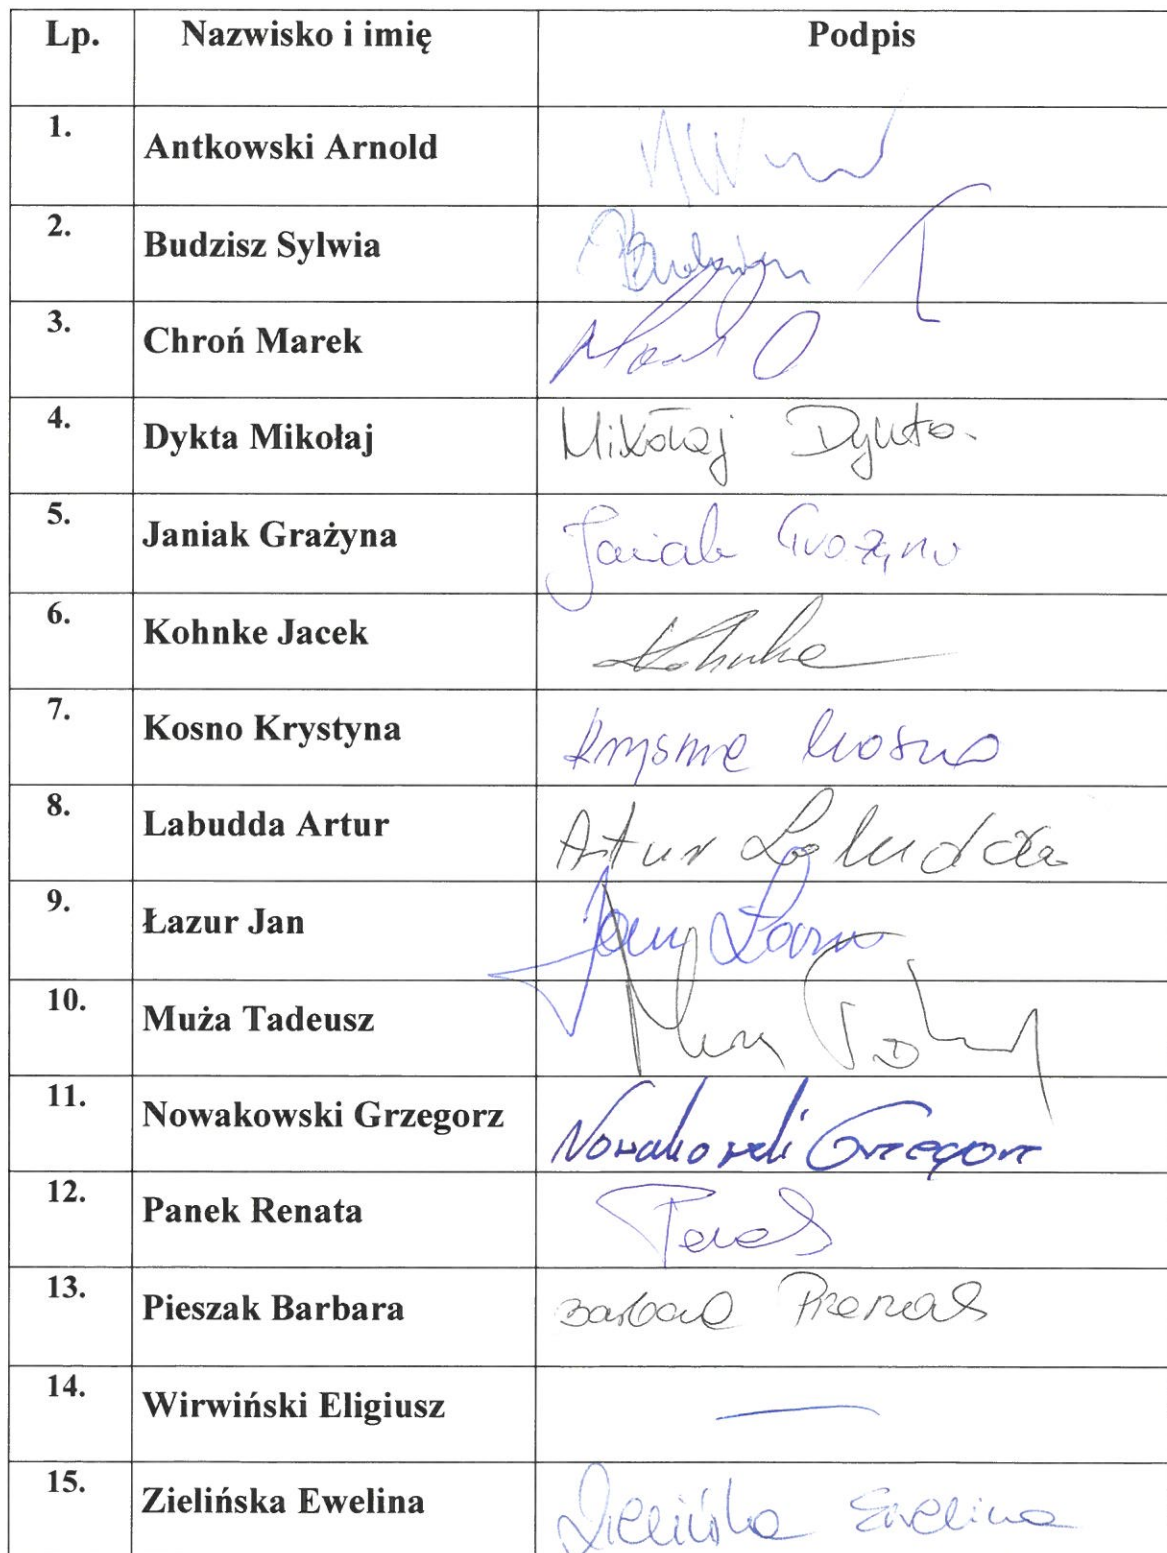 Lp. Nazwisko i imię Podpis
1. Antkowski Arnold
2. Budzisz Sylwia
3. Chroń Marek
4. Dykta Mikołaj Mikołaj Dykta.
5. Janiak Grażyna Janiak Grażyna
6. Kohnke Jacek Kohnke
7. Kosno Krystyna Krystyna Kosno
8. Labudda Artur Artur Labudda
9. Łazur Jan
10. Muża Tadeusz
11. Nowakowski Grzegorz Nowakowski Grzegorz
12. Panek Renata
13. Pieszak Barbara Barbara Pieszak
14. Wirwiński Eligiusz —
15. Zielińska Ewelina Zielińska Ewelina